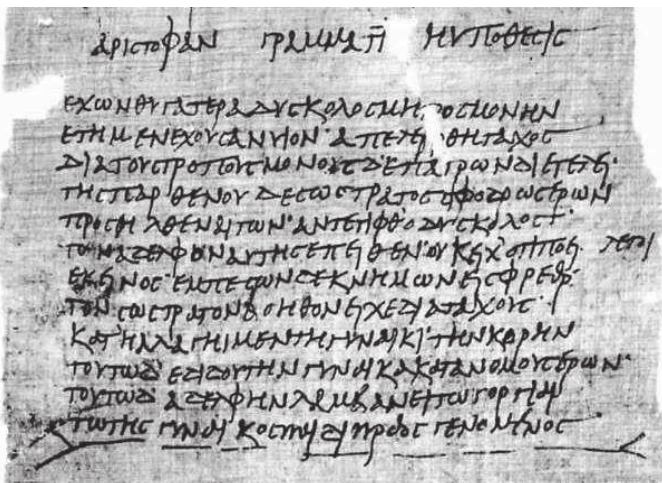 ΑΡΙϹΤΟΦΑΝ ΓΡΑΜΜΑΤΙ ΗΥΠΟΘΕϹΙϹ
ΕΧΩΝΘΥΓΑΤΕΡΑΔΥϹΚΟΛΟϹΜΗΤΡΟϹΜΟΝΗΝ
ΕΓΗΜΕΝΕΧΟΥϹΑΝΥΙΟΝ·ΑΠΕΛΕΙΦΘΗΤΑΧΟϹ
ΔΙΑΤΟΥϹΤΡΟΠΟΥϹΜΟΝΟΥϹΔΕΠΑΓΡΩΝΔΙΕΤΕΛΕΙ·
ΤΗϹΠΑΡΘΕΝΟΥΔΕϹΩϹΤΡΑΤΟϹϹΦΟΔΡΩϹΕΡΩΝ
ΠΡΟϹΗΛΘΕΝΑΙΤΩΝ·ΑΝΤΕΠΙΦΘΟΔΥϹΚΟΛΟϹ·
ΤΟΝΑΔΕΛΦΟΝΑΥΤΗϹΕΠΕΙΘΕΝ·ΟΥΚΕΙΧΟΤΙΠΟΕΙ· ΛΕΓΟΙ
ΕΚΕΙΝΟϹ·ΕΜΠΕϹΩΝΔΕΚΝΗΜΩΝΕΙϹΦΡΕΑΡ·
ΤΟΝϹΩϹΤΡΑΤΟΝΒΟΗΘΟΝΕΙΧΕΔΙΑΤΑΧΟΥϹ·
ΚΑΤΗΛΛΑΓΗΜΕΝΤΗΓΥΝΑΙΚΙ·ΤΗΝΚΟΡΗΝ
ΤΟΥΤΩΔ'ΕΔΙΔΟΥΤΗΝΓΥΝΑΙΚΑΚΑΤΑΝΟΜΟΥϹΕΡΩΝ·
ΤΟΥΤΩΔΑΔΕΛΦΗΝΛΑΜΒΑΝΕΙΤΩΓΟΡΓΙΑΙ
ΤΩΤΗϹΓΥΝΑΙΚΟϹΠΑΙΔΙΠΡΑΟϹΓΕΝΟΜΕΝΟϹ